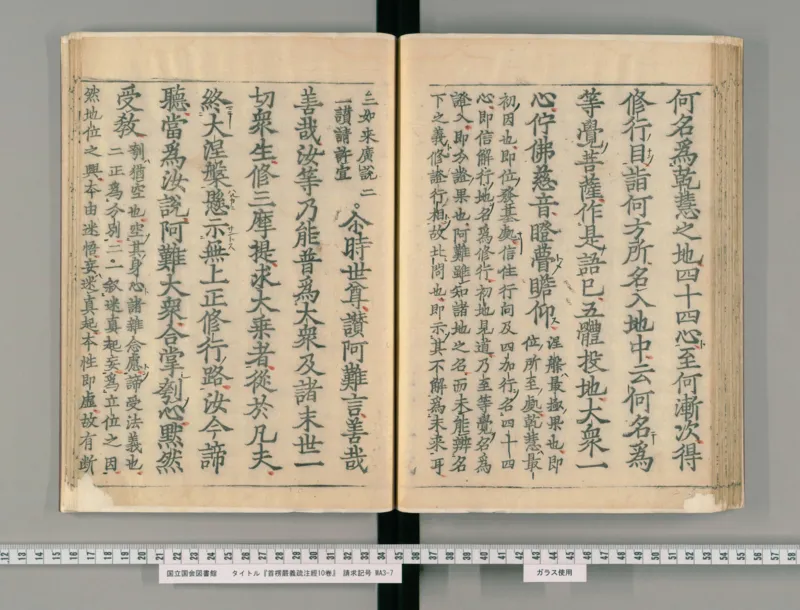 何名爲乾慧之地四十四心至何漸次得
修行目詣何方所名入地中云何名爲
等覺菩薩作是語已五體投地大衆一
心佇佛慈音瞪瞢瞻仰
涅槃最極果也即
位所至處乾慧最
初因也即位發基處信住行向及四加行名四十四
心即信解行地名爲修行初地見道乃至等覺名爲
證入即分證果也阿難雖知諸地之名而未能辨名
下之義修證行相故此問也即示其不解爲未来耳
三如来廣說二
一讃請許宣
。尒時世尊讃阿難言善哉
善哉汝等乃能普爲大衆及諸末世一
切衆生修三摩提求大乘者從於凡夫
終大涅槃懸示無上正修行路汝今諦
聽當爲汝說阿難大衆合掌刳心黙然
受教
刳猶空也空其身心諸雜念慮諦受法義也
二正爲分別二一叙迷真起妄爲立位之因
然地位之興本由迷悟妄迷真起本性即虛故有斷
国立国会図書館 タイトル『首楞嚴義疏注經10巻』 請求記号 WA3-7
ガラス使用